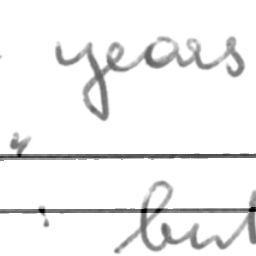 years
but